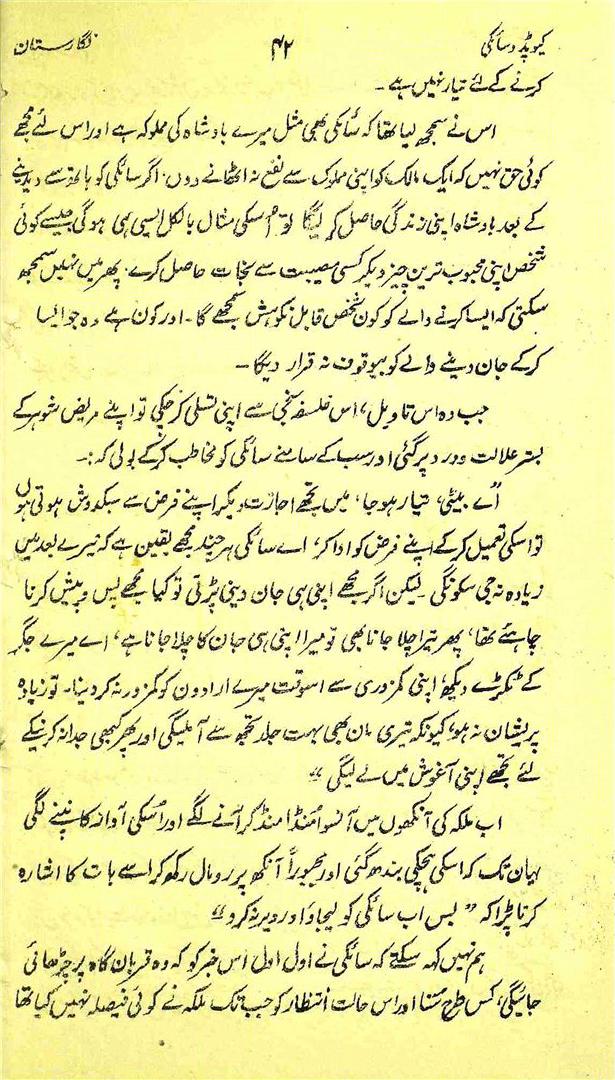 کیوپڈ و سائکی ۴۲ نگارستان
کرنے کے لئے تیار نہیں ہے ۔
اس نے سمجھ لیا تھا کہ سائکی بھی مثل میرے بادشاہ کی مملوکہ ہے اور اس لئے مجھے
کوئی حق نہیں کہ ایک مالک کو اپنی مملوک سے نفع نہ اٹھانے دوں ۔ اگر سائکی کو ہاتھ سے دیدینے
کے بعد بادشاہ اپنی زندگی حاصل کر لیگا تو اُسکی مثال بالکل ایسی ہی ہوگی جیسے کوئی
شخص اپنی محبوب ترین چیز دیکر کسی مصیبت سے نجات حاصل کرے ۔ پھر میں نہیں سمجھ
سکتی کہ ایسا کرنے والے کو کون شخص قابل نکوہش سمجھے گا ۔ اور کون ہے وہ جو ایسا
کرکے جان دینے والے کو بیوقوف نہ قرار دیگا ۔
جب وہ اس تاویل، اس فلسفہ سنجی سے اپنی تسلی کرچکی تو اپنے مریض شوہر کے
بستر علالت و درد پر گئی اور سب کے سامنے سائکی کو مخاطب کرکے بولی کہ :۔
"اے بیٹی، تیار ہوجا، میں تجھے اجازت دیکر اپنے فرض سے سبکدوش ہوتی ہوں
تو اسکی تعمیل کرکے اپنے فرض کو ادا کر، اے سائکی ہر چند مجھے یقین ہے کہ تیرے بعد میں
زیادہ نہ جی سکونگی لیکن اگر مجھے اپنی ہی جان دینی پڑتی تو کیا مجھے پس و پیش کرنا
چاہئے تھا، پھر تیرا چلا جانا بھی تو میرا اپنی ہی جان کا چلا جانا ہے، اے میرے جگر
کے ٹکڑے دیکھ، اپنی کمزوری سے اسوقت میرے ارادون کو کمزور نہ کردینا ۔ تو زیادہ
پریشان نہ ہو، کیونکہ تیری ماں بھی بہت جلد تجھ سے آملیگی اور پھر کبھی جدا نہ کرنیکے
لئے تجھے اپنی آغوش میں لے لیگی"
اب ملکہ کی آنکھوں میں آنسو اُمنڈ اُمنڈ کر آنے لگے اور اُسکی آواز کانپنے لگی
یہان تک کہ اسکی ہچکی بندھ گئی اور مجبوراً آنکھ پر رومال رکھ کر اسے بات کا اشارہ
کرنا پڑا کہ "بس اب سائکی کو لیجاؤ اور دیر نہ کرو"
ہم نہیں کہہ سکتے کہ سائکی نے اول اول اس خبر کو کہ وہ قربان گاہ پر چڑھائی
جائیگی، کس طرح سُنا اور اس حالت انتظار کو جب تک ملکہ نے کوئی فیصلہ نہیں کیا تھا